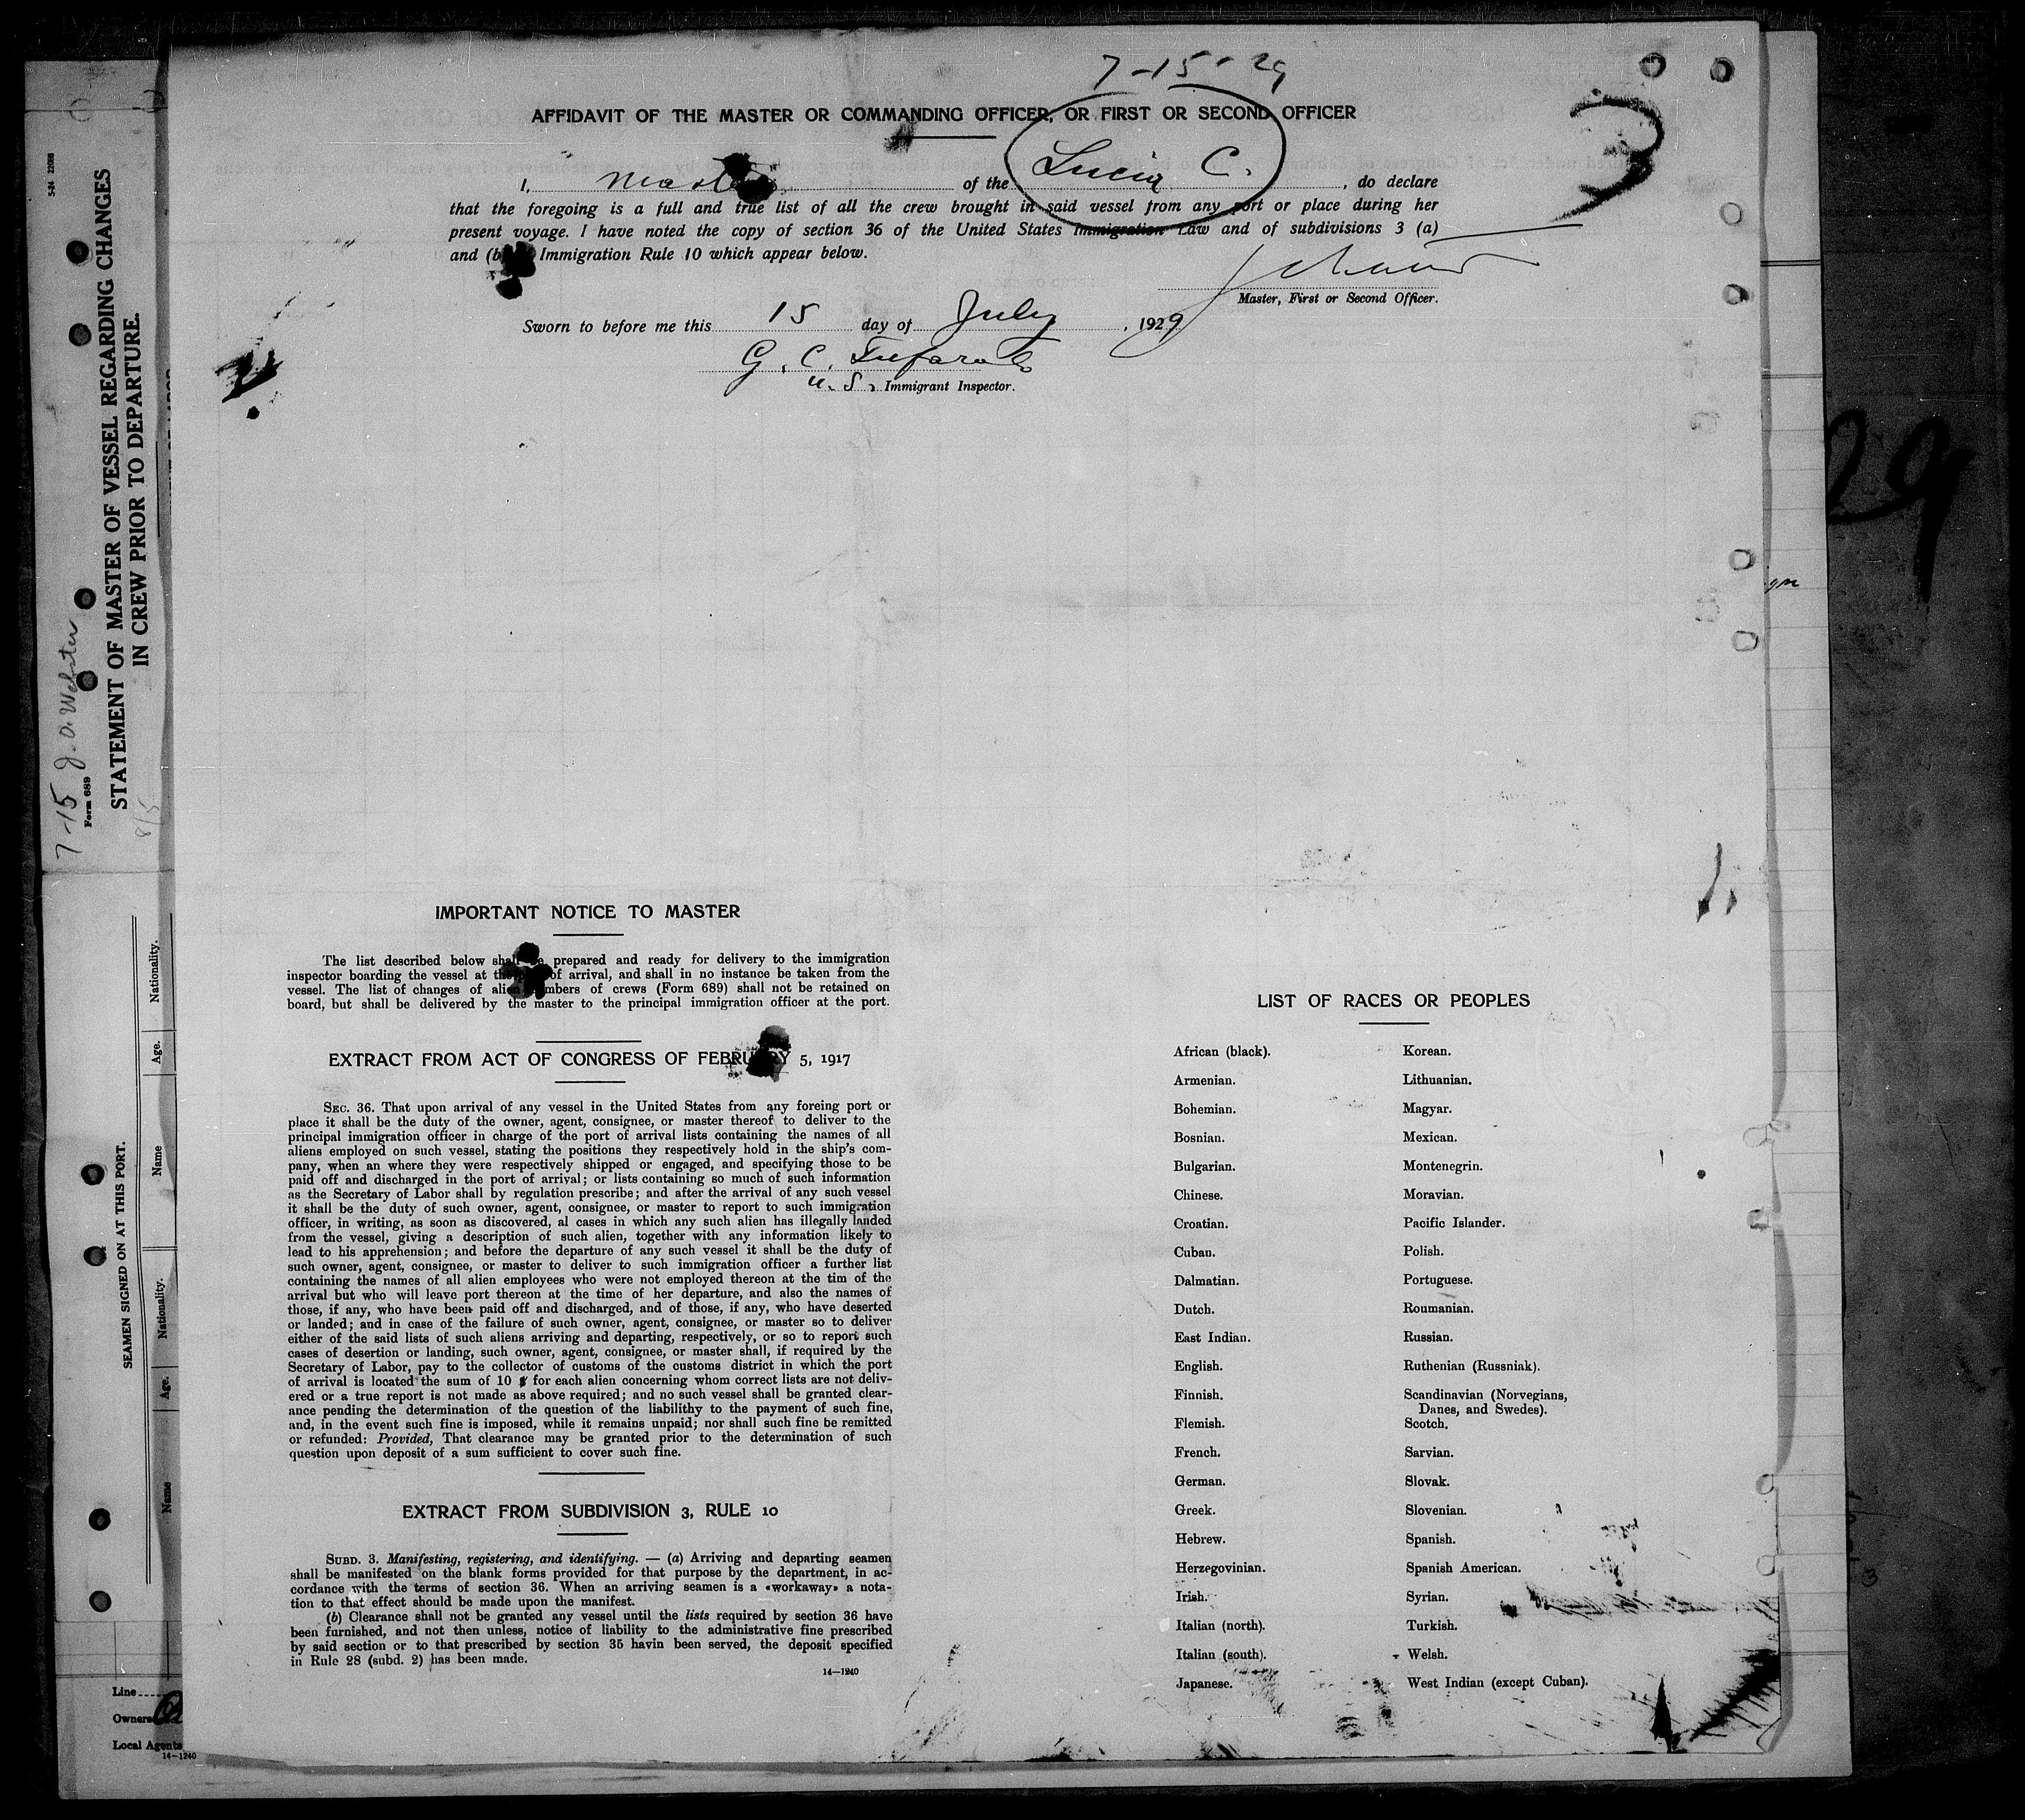 7-15-29
AFFIDAVIT OF THE MASTER OR COMMANDING OFFICER, OR FIRST OR SECOND OFFICER
I, Master of the Lucia C. , do declare
that the foregoing is a full and true list of all the crew brought in said vessel from any port or place during her
present voyage. I have noted the copy of section 36 of the United States Immigration Law and of subdivisions 3 (a)
and (b) Immigration Rule 10 which appear below.
Master, First or Second Officer.
Sworn to before me this 15 day of July , 1929
G. C.
U. S. Immigrant Inspector.
IMPORTANT NOTICE TO MASTER
The list described below shall be prepared and ready for delivery to the immigration
inspector boarding the vessel at the of arrival, and shall in no instance be taken from the
vessel. The list of changes of alien members of crews (Form 689) shall not be retained on
board, but shall be delivered by the master to the principal immigration officer at the port.
EXTRACT FROM ACT OF CONGRESS OF FEBRUARY 5, 1917
SEC. 36. That upon arrival of any vessel in the United States from any foreing port or
place it shall be the duty of the owner, agent, consignee, or master thereof to deliver to the
principal immigration officer in charge of the port of arrival lists containing the names of all
aliens employed on such vessel, stating the positions they respectively hold in the ship's com-
pany, when an where they were respectively shipped or engaged, and specifying those to be
paid off and discharged in the port of arrival; or lists containing so much of such information
as the Secretary of Labor shall by regulation prescribe; and after the arrival of any such vessel
it shall be the duty of such owner, agent, consignee, or master to report to such immigration
officer, in writing, as soon as discovered, al cases in which any such alien has illegally landed
from the vessel, giving a description of such alien, together with any information likely to
lead to his apprehension; and before the departure of any such vessel it shall be the duty of
such owner, agent, consignee, or master to deliver to such immigration officer a further list
containing the names of all alien employees who were not employed thereon at the tim of the
arrival but who will leave port thereon at the time of her departure, and also the names of
those, if any, who have been paid off and discharged, and of those, if any, who have deserted
or landed; and in case of the failure of such owner, agent, consignee, or master so to deliver
either of the said lists of such aliens arriving and departing, respectively, or so to report such
cases of desertion or landing, such owner, agent, consignee, or master shall, if required by the
Secretary of Labor, pay to the collector of customs of the customs district in which the port
of arrival is located the sum of 10 $ for each alien concerning whom correct lists are not deliv-
ered or a true report is not made as above required; and no such vessel shall be granted clear-
ance pending the determination of the question of the liabilithy to the payment of such fine,
and, in the event such fine is imposed, while it remains unpaid; nor shall such fine be remitted
or refunded: Provided, That clearance may be granted prior to the determination of such
question upon deposit of a sum sufficient to cover such fine.
EXTRACT FROM SUBDIVISION 3, RULE 10
SUBD. 3. Manifesting, registering, and identifying. — (a) Arriving and departing seamen
shall be manifested on the blank forms provided for that purpose by the department, in ac-
cordance with the terms of section 36. When an arriving seamen is a «workaway» a nota-
tion to that effect should be made upon the manifest.
(b) Clearance shall not be granted any vessel until the lists required by section 36 have
been furnished, and not then unless, notice of liability to the administrative fine prescribed
by said section or to that prescribed by section 35 havin been served, the deposit specified
in Rule 28 (subd. 2) has been made.
14—1240
LIST OF RACES OR PEOPLES
African (black).
Armenian.
Bohemian.
Bosnian.
Bulgarian.
Chinese.
Croatian.
Cuban.
Dalmatian.
Dutch.
East Indian.
English.
Finnish.
Flemish.
French.
German.
Greek.
Hebrew.
Herzegovinian.
Irish.
Italian (north).
Italian (south).
Japanese.
Korean.
Lithuanian.
Magyar.
Mexican.
Montenegrin.
Moravian.
Pacific Islander.
Polish.
Portuguese.
Roumanian.
Russian.
Ruthenian (Russniak).
Scandinavian (Norvegians,
Danes, and Swedes).
Scotch.
Sarvian.
Slovak.
Slovenian.
Spanish.
Spanish American.
Syrian.
Turkish.
Welsh.
West Indian (except Cuban).
7-15 J. O. Webster
Form 689
STATEMENT OF MASTER OF VESSEL REGARDING CHANGES
IN CREW PRIOR TO DEPARTURE.
8/15
SEAMEN SIGNED ON AT THIS PORT.
Name
Age.
Nationality.
Name
Age.
Nationality.
Line
Owners
Local Agents
14—1240
29